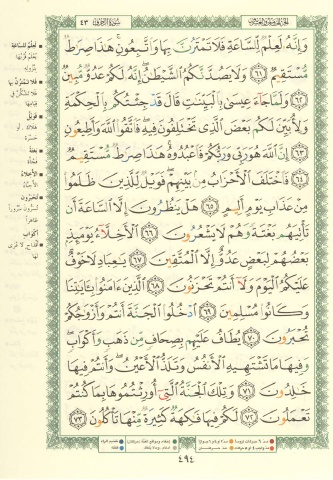 الجزء الخامس والعشرون
سورة الزخرف ٤٣
وَإِنَّهُۥ لَعِلْمٌ لِّلسَّاعَةِ فَلَا تَمْتَرُنَّ بِهَا وَٱتَّبِعُونِ ۚ هَٰذَا صِرَٰطٌ
مُّسْتَقِيمٌ ٦١ وَلَا يَصُدَّنَّكُمُ ٱلشَّيْطَٰنُ ۖ إِنَّهُۥ لَكُمْ عَدُوٌّ مُّبِينٌ
٦٢ وَلَمَّا جَآءَ عِيسَىٰ بِٱلْبَيِّنَٰتِ قَالَ قَدْ جِئْتُكُم بِٱلْحِكْمَةِ
وَلِأُبَيِّنَ لَكُم بَعْضَ ٱلَّذِى تَخْتَلِفُونَ فِيهِ ۖ فَٱتَّقُوا۟ ٱللَّهَ وَأَطِيعُونِ
٦٣ إِنَّ ٱللَّهَ هُوَ رَبِّى وَرَبُّكُمْ فَٱعْبُدُوهُ ۚ هَٰذَا صِرَٰطٌ مُّسْتَقِيمٌ
٦٤ فَٱخْتَلَفَ ٱلْأَحْزَابُ مِنۢ بَيْنِهِمْ ۖ فَوَيْلٌ لِّلَّذِينَ ظَلَمُوا۟
مِنْ عَذَابِ يَوْمٍ أَلِيمٍ ٦٥ هَلْ يَنظُرُونَ إِلَّا ٱلسَّاعَةَ أَن
تَأْتِيَهُم بَغْتَةً وَهُمْ لَا يَشْعُرُونَ ٦٦ ٱلْأَخِلَّآءُ يَوْمَئِذٍۭ
بَعْضُهُمْ لِبَعْضٍ عَدُوٌّ إِلَّا ٱلْمُتَّقِينَ ٦٧ يَٰعِبَادِ لَا خَوْفٌ
عَلَيْكُمُ ٱلْيَوْمَ وَلَآ أَنتُمْ تَحْزَنُونَ ٦٨ ٱلَّذِينَ ءَامَنُوا۟ بِـَٔايَٰتِنَا
وَكَانُوا۟ مُسْلِمِينَ ٦٩ ٱدْخُلُوا۟ ٱلْجَنَّةَ أَنتُمْ وَأَزْوَٰجُكُمْ
تُحْبَرُونَ ٧٠ يُطَافُ عَلَيْهِم بِصِحَافٍ مِّن ذَهَبٍ وَأَكْوَابٍ ۖ
وَفِيهَا مَا تَشْتَهِيهِ ٱلْأَنفُسُ وَتَلَذُّ ٱلْأَعْيُنُ ۖ وَأَنتُمْ فِيهَا
خَٰلِدُونَ ٧١ وَتِلْكَ ٱلْجَنَّةُ ٱلَّتِىٓ أُورِثْتُمُوهَا بِمَا كُنتُمْ
تَعْمَلُونَ ٧٢ لَكُمْ فِيهَا فَٰكِهَةٌ كَثِيرَةٌ مِّنْهَا تَأْكُلُونَ ٧٣
لعلم للساعة
فلا تمترن بها
فويل
بغتة
الأخلاء
تحبرون
أكواب
٤٩٤